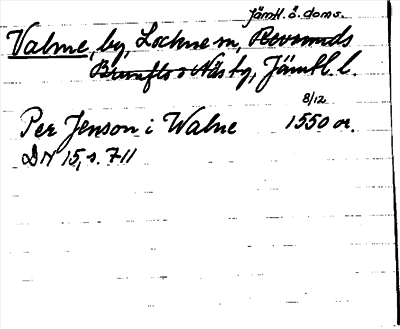 Jämtl. ö. doms.
Valne, by, Lockne sn, Revsunds
Brunflo o Näs tg, Jämtl. l.
8/12
Per Jenson i Walne 1550 or.
DN 15, s. 711